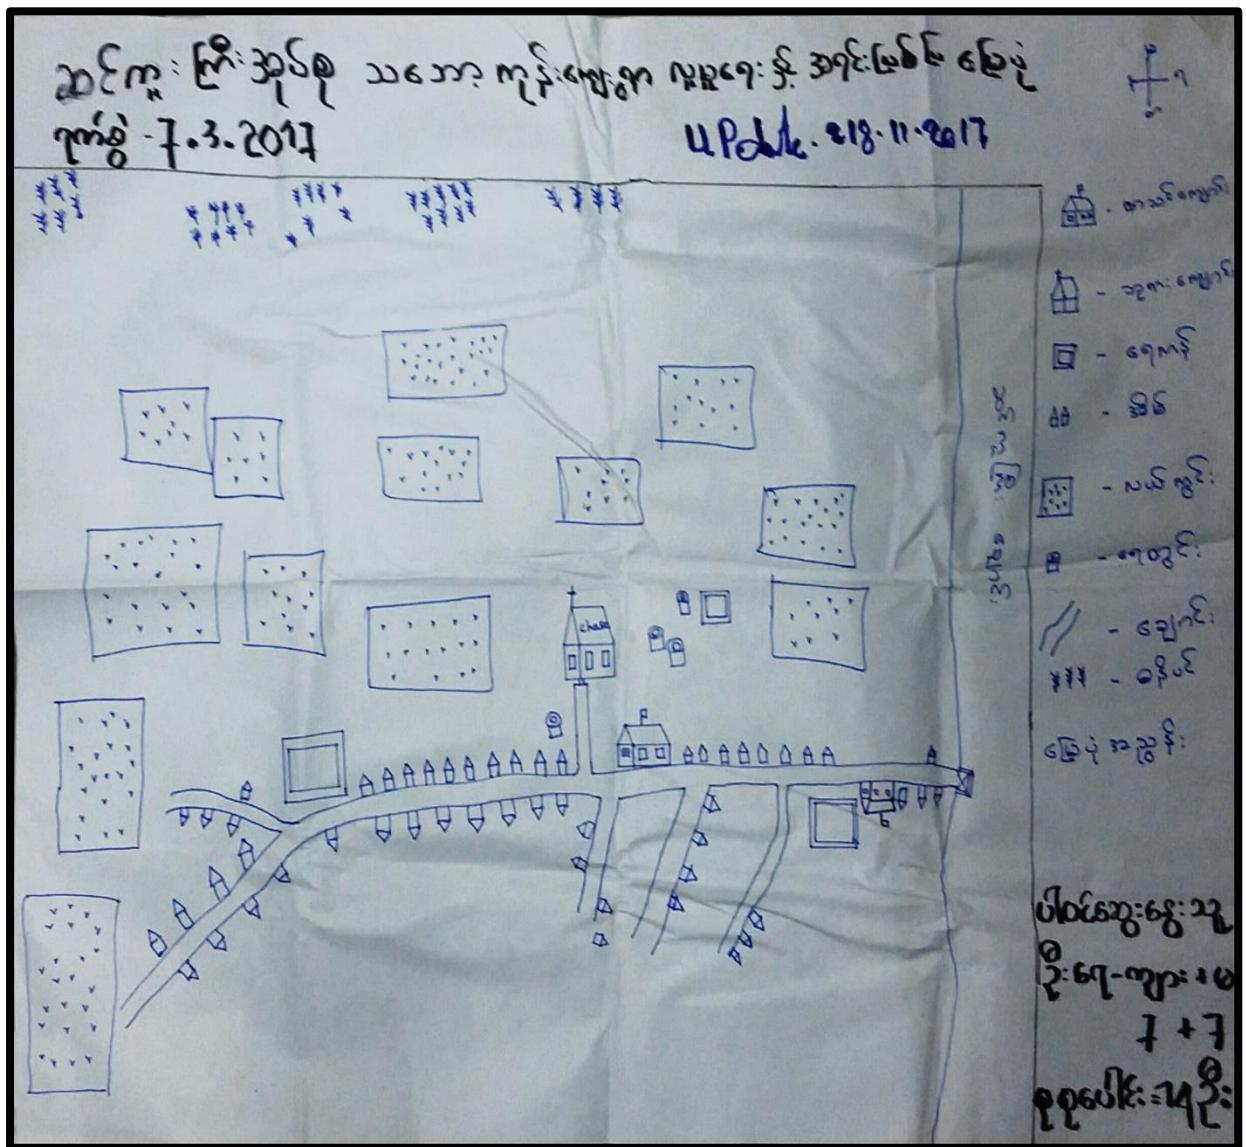 ဆင်ကူးကြီးအုပ်စု သင်္ဘောကုန်းကျေးရွာ လူမှုရေးနှင့် အရင်းအမြစ်ပြ မြေပုံ
ရက်စွဲ - 7.3.2017
UPdate. 218.11.2017
စာသင်ကျောင်း
- ဘုရားကျောင်း
- ရေကန်
- အိမ်
- လယ်ကွင်း
- ရေတွင်း
- ချောင်း
- ဓနိပင်
မြေပုံအညွှန်း
chase
ပါဝင်ဆွေးနွေးသူ
ဦးရေ - ကျား + မ
7 + 7
စုစုပေါင်း = ၁၄ ဦး